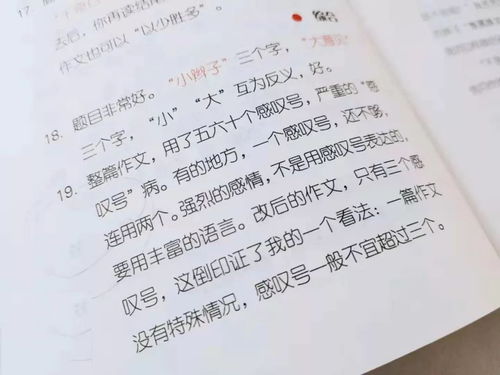 去后，你再读结尾
作文也可以“以少胜多”。
18. 题目非常好。“小辫子”三个字，“大
三个字，“小”“大”互为反义，好。
19. 整篇作文，用了五六十个感叹号，严重的“感
叹号”病。有的地方，一个感叹号，还不够，
连用两个。强烈的感情，不是用感叹号表达的，
要用丰富的语言。改后的作文，只有三个感
叹号，这倒印证了我的一个看法：一篇作文
没有特殊情况，感叹号一般不宜超过三个。